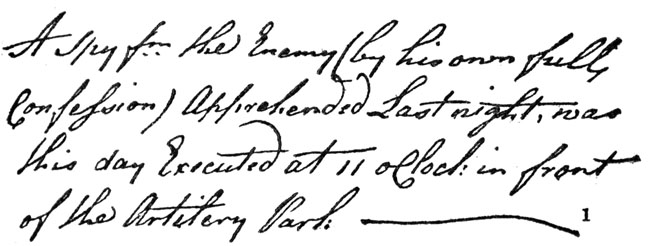 A Spy fm the Enemy (by his own full
Confession) Apprehended Last night, was
this day Executed at 11 oClock in front
of the Artilery Park 1